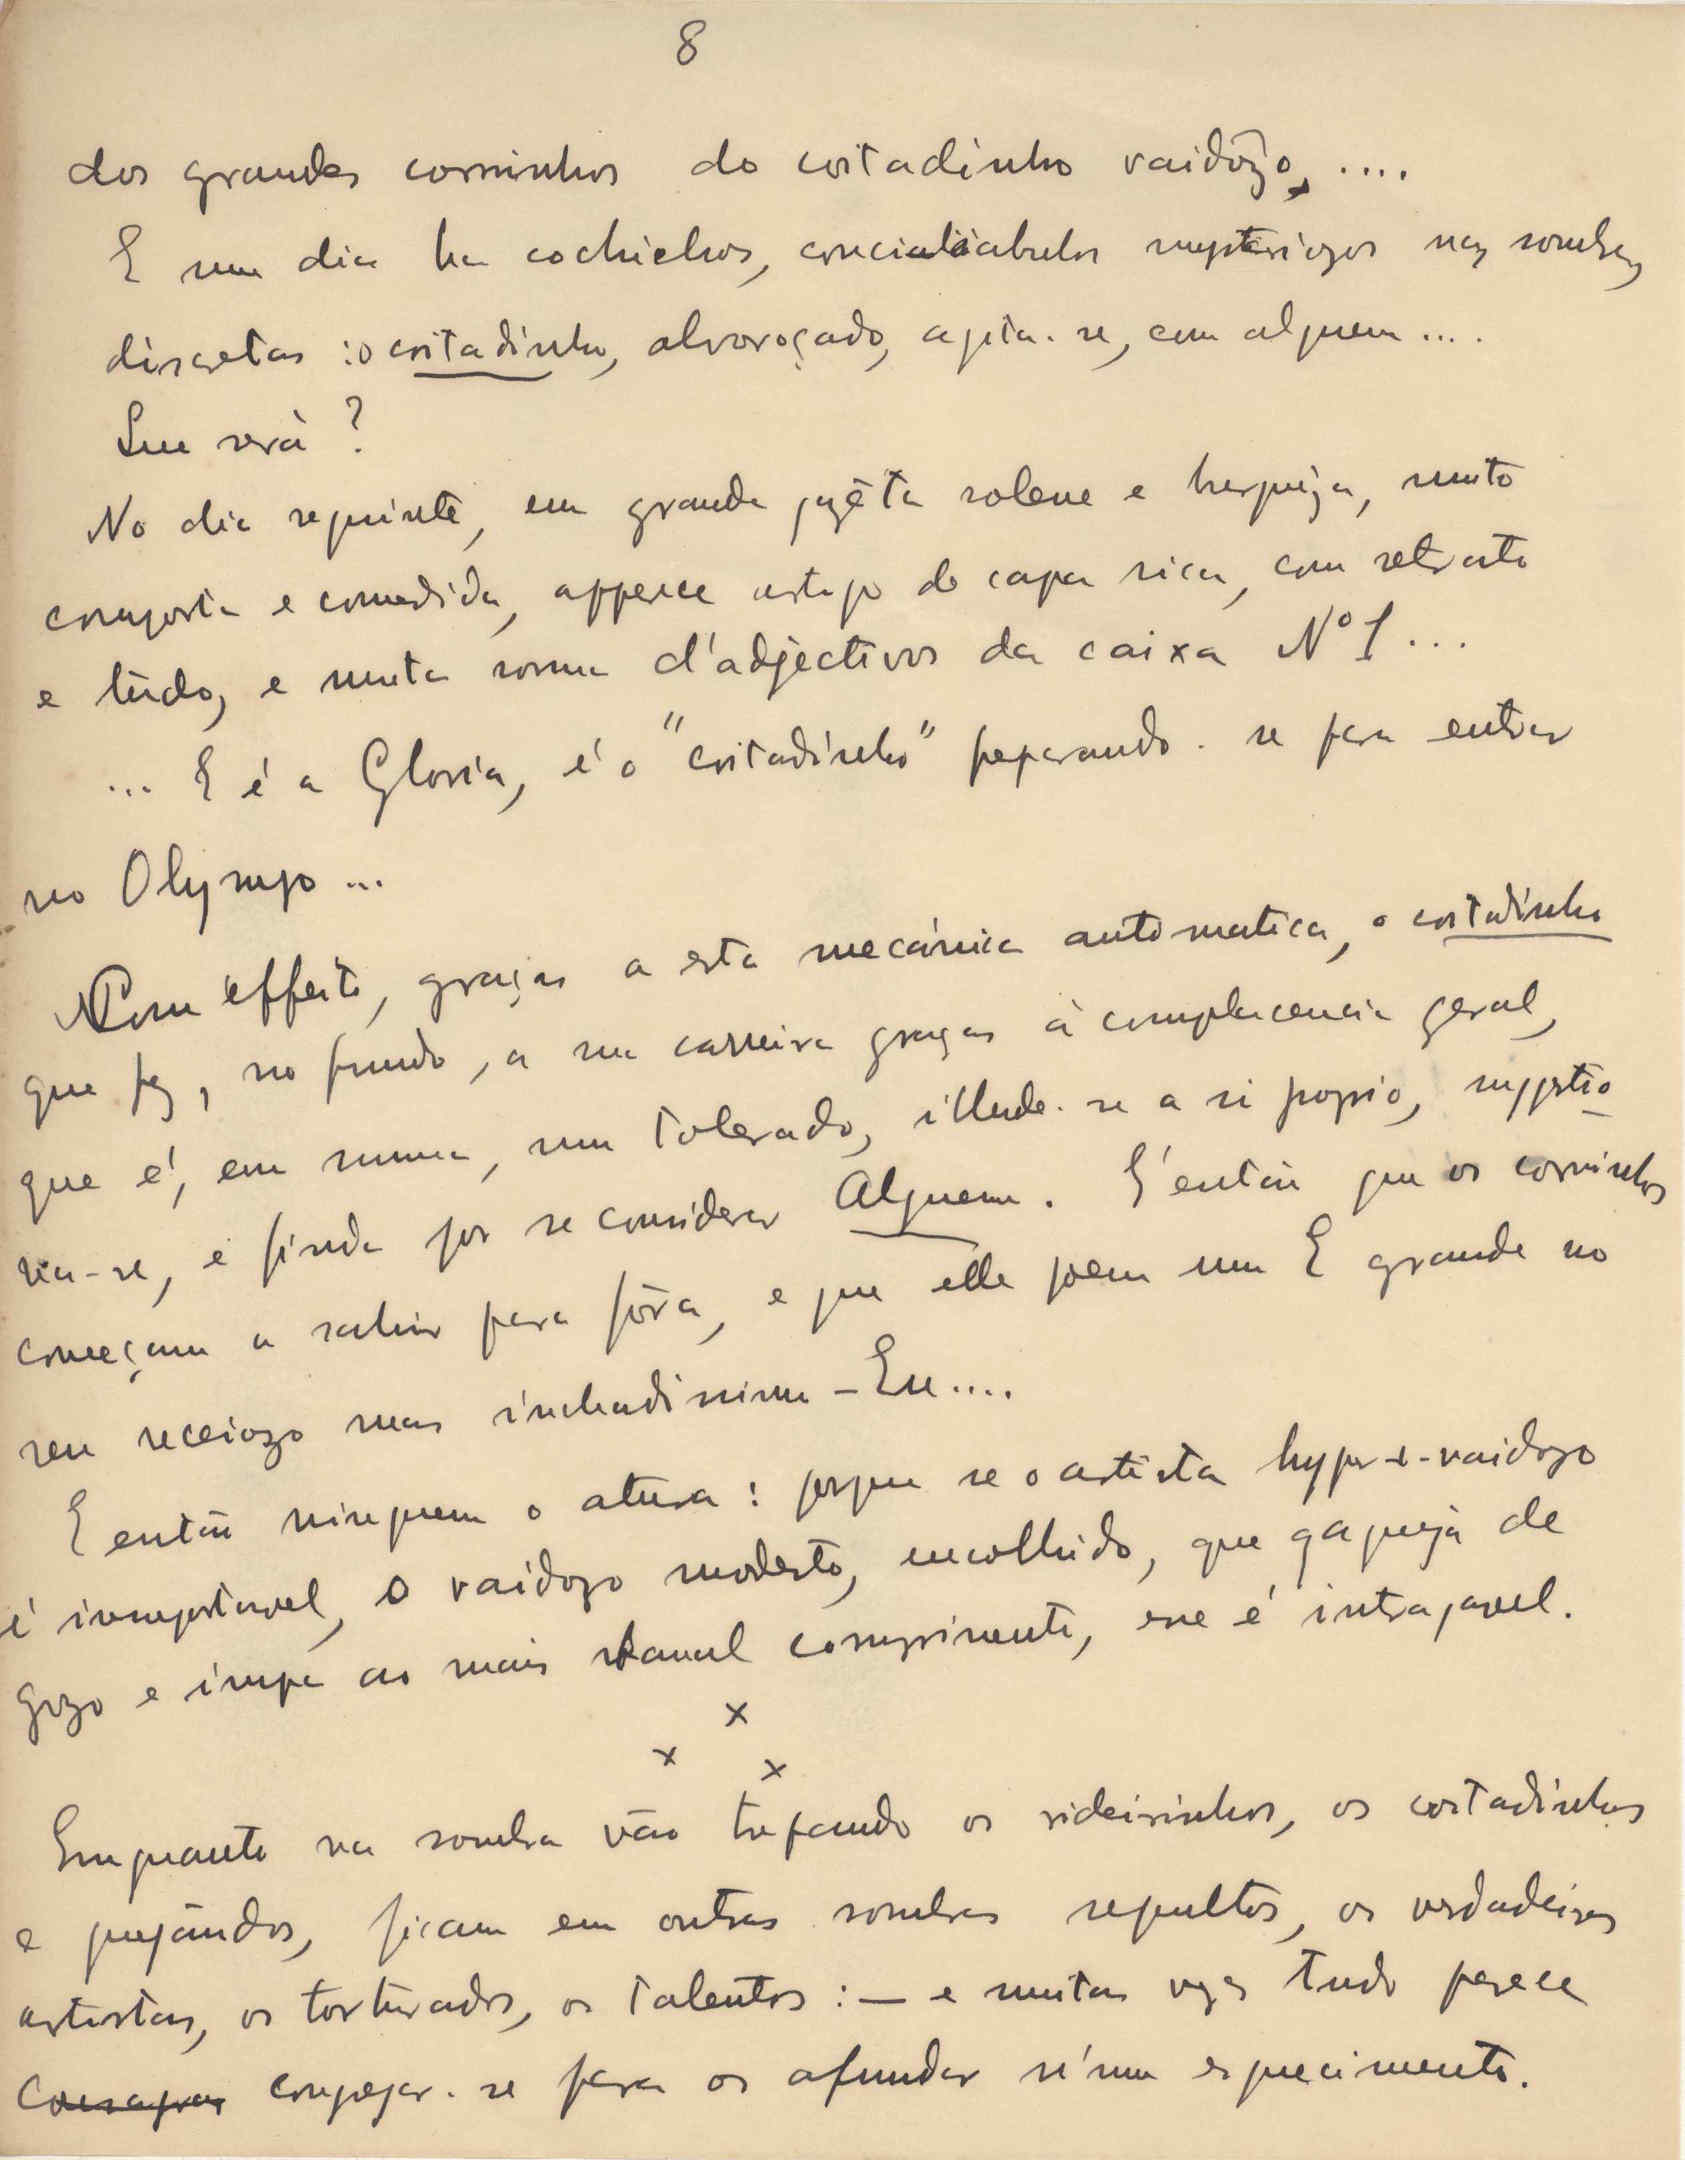 8
dos grandes corninhos do coitadinho vaidôzo, ....
E um dia ha cochichos, conciliabulos mysteriozos nas sombras
discretas : o coitadinho, alvoroçado, agita-se, com alguem ....
Que será ?
No dia seguinte, em grande gazêta solene e burgueza, muito
composta e comedida, apparece artigo de capa rica, com retrato
e túdo, e muita soma d'adjectivos da caixa Nº 1 ...
... E é a Gloria, é o "coitadinho" preparando-se para entrar
no Olympo ...
Com effeito, graças a esta mecánica automatica, o coitadinho
que fez, no fundo, a sua carreira graças á complacencia geral,
que é, em suma, um tolerado, illude-se a si proprio, suggestio
na-se, e finda por se considerar Alguem. E' então que os corninhos
começam a sahir para fóra, e que elle põem um E grande no
seu receiozo mas inchadissimo - Eu ....
E então ninguem o atura : porque se o artista hyper-vaidozo
é insuportavel, o vaidozo modesto, encolhido, que gagueja de
gozo e impa ao mais banal comprimento, esse é intragavel.
x
x x
Emquanto na sombra vão trepando os coitadinhos
e ficam em outras sombras sepultos, os verdadeiros
artistas, os torturados, os talentos : — e muitas vezes tudo parece
conjugar-se para os afundar n'um esquecimento.